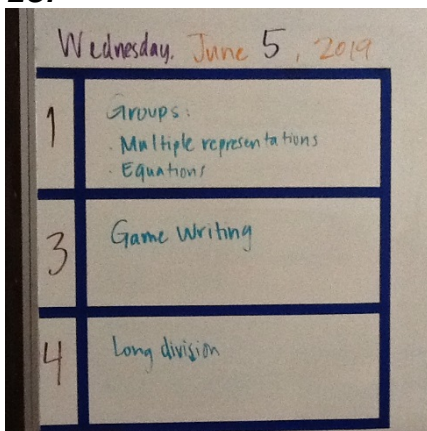 Wednesday. June 5, 2019
1
Groups:
· Multiple representations
· Equations
3
Game Writing
4
Long division